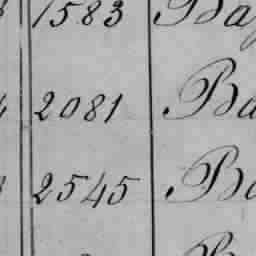 1583 Ba
2081 Ba
2545 Ba